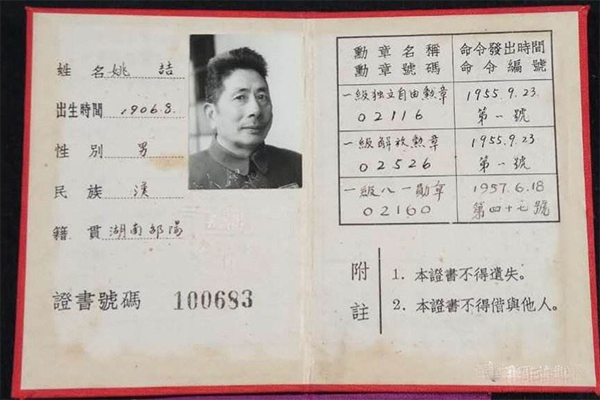 姓名 姚喆
出生時間 1906.8.
性別 男
民族 漢
籍貫 湖南邵陽
證書號碼 100683
勳章名稱 命令發出時間
勳章號碼 命令編號
一級独立自由勲章 1955.9.23
02116 第一號
一級解放勲章 1955.9.23
02526 第一號
一級八一勛章 1957.6.18
02160 第四十七號
附註
1. 本證書不得遺失。
2. 本證書不得借與他人。